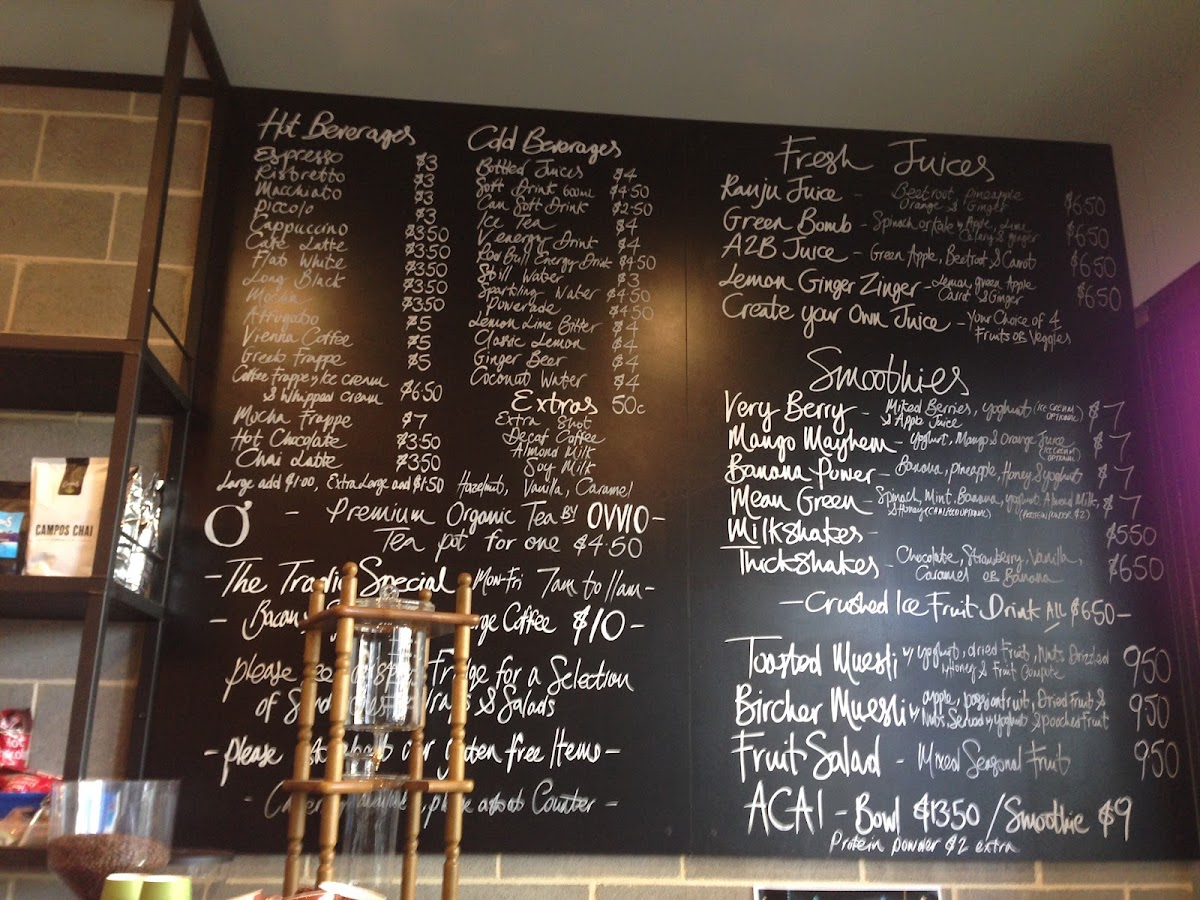 Hot Beverages
Espresso $3
Ristretto $3
Macchiato $3
Piccolo $3
Cappuccino $350
Cafe Latte $350
Flat White $350
Long Black $350
Mocha $350
Affogato $5
Vienna Coffee $5
Greek Frappe $5
Coffee Frappe w Ice cream
& Whipped cream $6.50
Mocha Frappe $7
Hot Chocolate $3.50
Chai Latte $350
Large add $1.00, Extra Large add $1.50
Cold Beverages
Bottled Juices $4
Soft Drink 600ml $4.50
Can Soft Drink $2.50
Ice Tea $4
V energy Drink $4
Red Bull Energy Drink $4.50
Still Water $3
Sparkling Water $4.50
Powerade $4.50
Lemon Lime Bitter $4
Classic Lemon $4
Ginger Beer $4
Coconut Water $4
Extras 50c
Extra Shot
Decaf Coffee
Almond Milk
Soy Milk
Hazelnut, Vanilla, Caramel
- Premium Organic Tea BY OVVIO -
Tea pot for one $4.50
- The Tradie Special Mon-Fri 7am to 11am -
- Bacon Coffee $10 -
please Fridge for a Selection
of & Salads
- please our gluten free Items -
please ask at Counter -
Fresh Juices
Ranju Juice - Beetroot, pineapple
Orange & Ginger $650
Green Bomb - Spinach or Kale w Apple, Lime
Celery & ginger $650
A2B Juice - Green Apple, Beetroot, & Carrot $650
Lemon Ginger Zinger - Lemon, green Apple
Carrot & Ginger $650
Create your Own Juice - Your Choice of 4
Fruits or Veggies
Smoothies
Very Berry - Mixed Berries, yoghurt (ICE CREAM OPTIONAL)
& Apple Juice $7
Mango Mayhem - Yoghurt, Mango & Orange Juice
(ICE CREAM OPTIONAL) $7
Banana Power - Banana, pineapple, Honey & yoghurt $7
Mean Green - Spinach, Mint, Banana, yoghurt, Almond Milk,
& Honey (PROTEIN POWDER $2) $7
Milkshakes - $550
Thickshakes - Chocolate, Strawberry, Vanilla,
Caramel OR Banana $650
- Crushed Ice Fruit Drink All $650 -
Toasted Muesli w/ yoghurt, dried Fruit, Nuts
Honey & Fruit Compote 950
Bircher Muesli w apple, passionfruit, Dried Fruit &
Nuts, Served w yoghurt & poached fruit 950
Fruit Salad - Mixed Seasonal Fruit 950
ACAI - Bowl $1350 / Smoothie $9
Protein powder $2 extra
CAMPOS CHAI